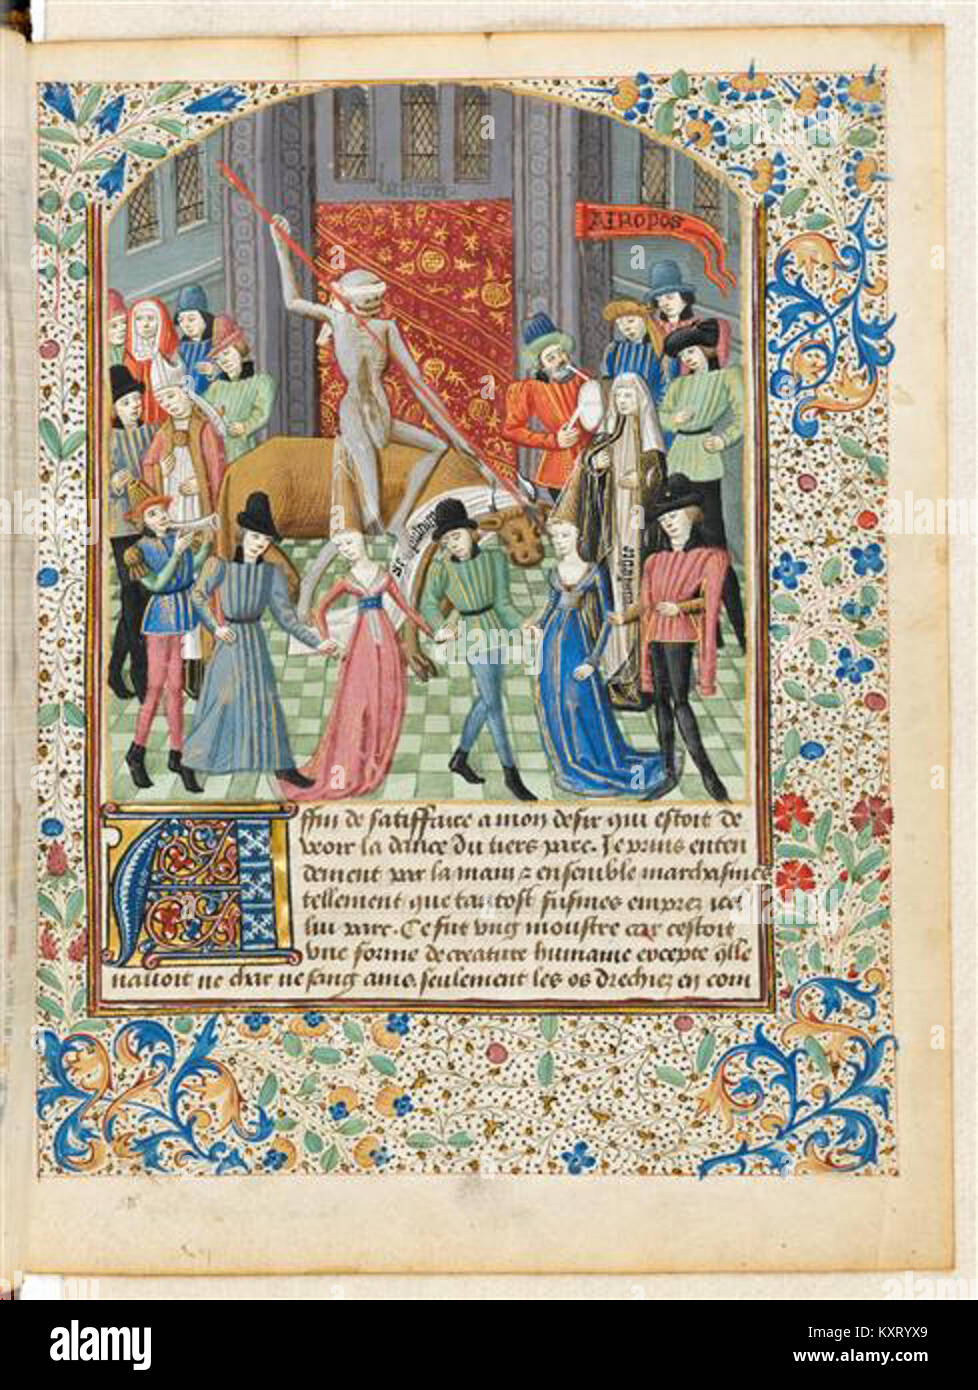 ATROPOS
Affin de satiffaire a mon desir qui estoit de
veoir la dance du tiers parc. Je prins enten
dement par la main z ensemble marchasmes
tellement que tantost fusmes emprez icel
lui parc. Ce fut ung monstre car cestoit
vne forme de creature humaine excepte qlle
nauoit ne char ne sang ains seulement les os drechiez en com
alamy
Image ID: KXRYX9
www.alamy.com